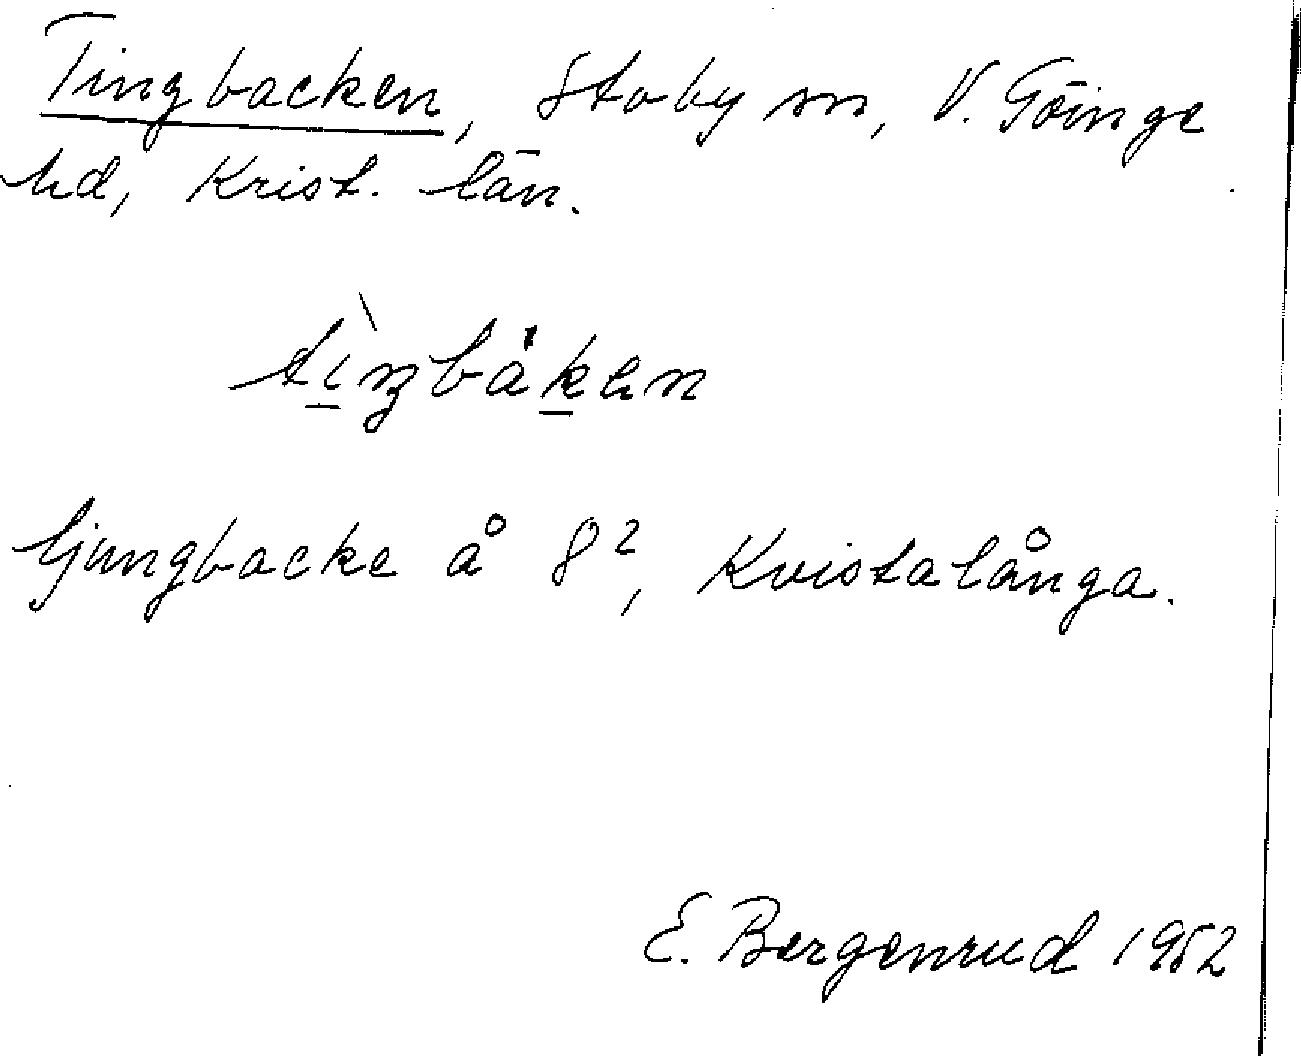 Tingbacken, Stoby sn, V. Göinge
hd, Krist. län.
tìŋbákən
ljungbacke å 8², Kvistalånga.
E. Bergenrud 1952